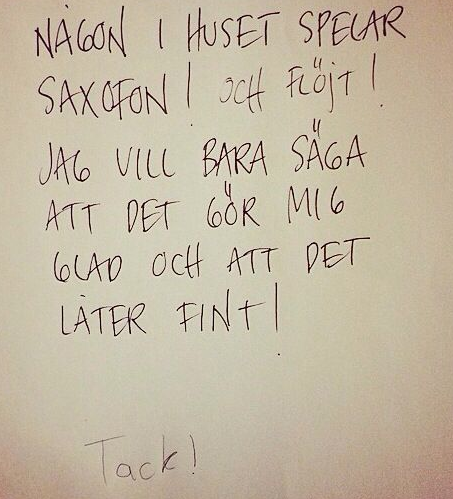 NÅGON I HUSET SPELAR
SAXOFON! OCH FLÖJT!
JAG VILL BARA SÄGA
ATT DET GÖR MIG
GLAD OCH ATT DET
LÅTER FINT!
Tack!